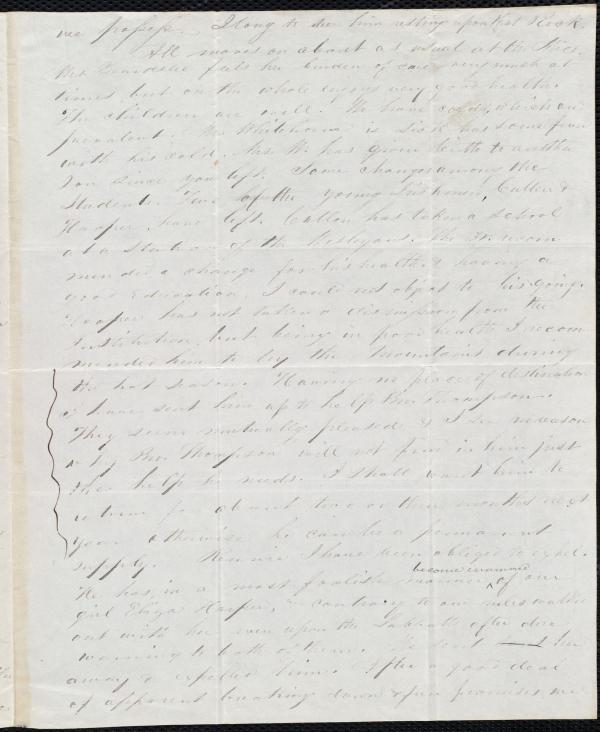 we profess. I long to see him resting upon that Rock.
All moves on about as usual at the
Mrs Beardslee feels her burden of care very much at
times, but on the whole enjoys very good health.
The children are well. We have colds, which are
prevalent. Mr Whitehorne is sick has some fever
with his cold. Mrs W. has given birth to another
son since you left. Some changes among the
Students. Two of the young Cullen &
Hooper, have left. Cullen has taken a school
at a Station of the Wesleyans. The Dr. recom
mended a change for his health & having a
good Education, I could not object to his going.
Hooper has not taken a dismission from the
Institution, but being in poor health I recom
mended him to try the Mountains during
the hot season. Having no place of destination
I have sent him up to help Bro Thompson.
They seem mutually pleased & I see no reason
why Bro. Thompson will not find in him just
the help he needs. I shall want him to
return for about two or three months next
year otherwise he can be a permanent
supply. I have been obliged to expel.
become enamored
He has, in a most foolish manner ^ of our
girl Eliza Harper, & contrary to our rules walked
out with her even upon the Sabbath after due
warning to both of them. We sent her
away & expelled him. After a good deal
of apparent breaking down & fair promises we